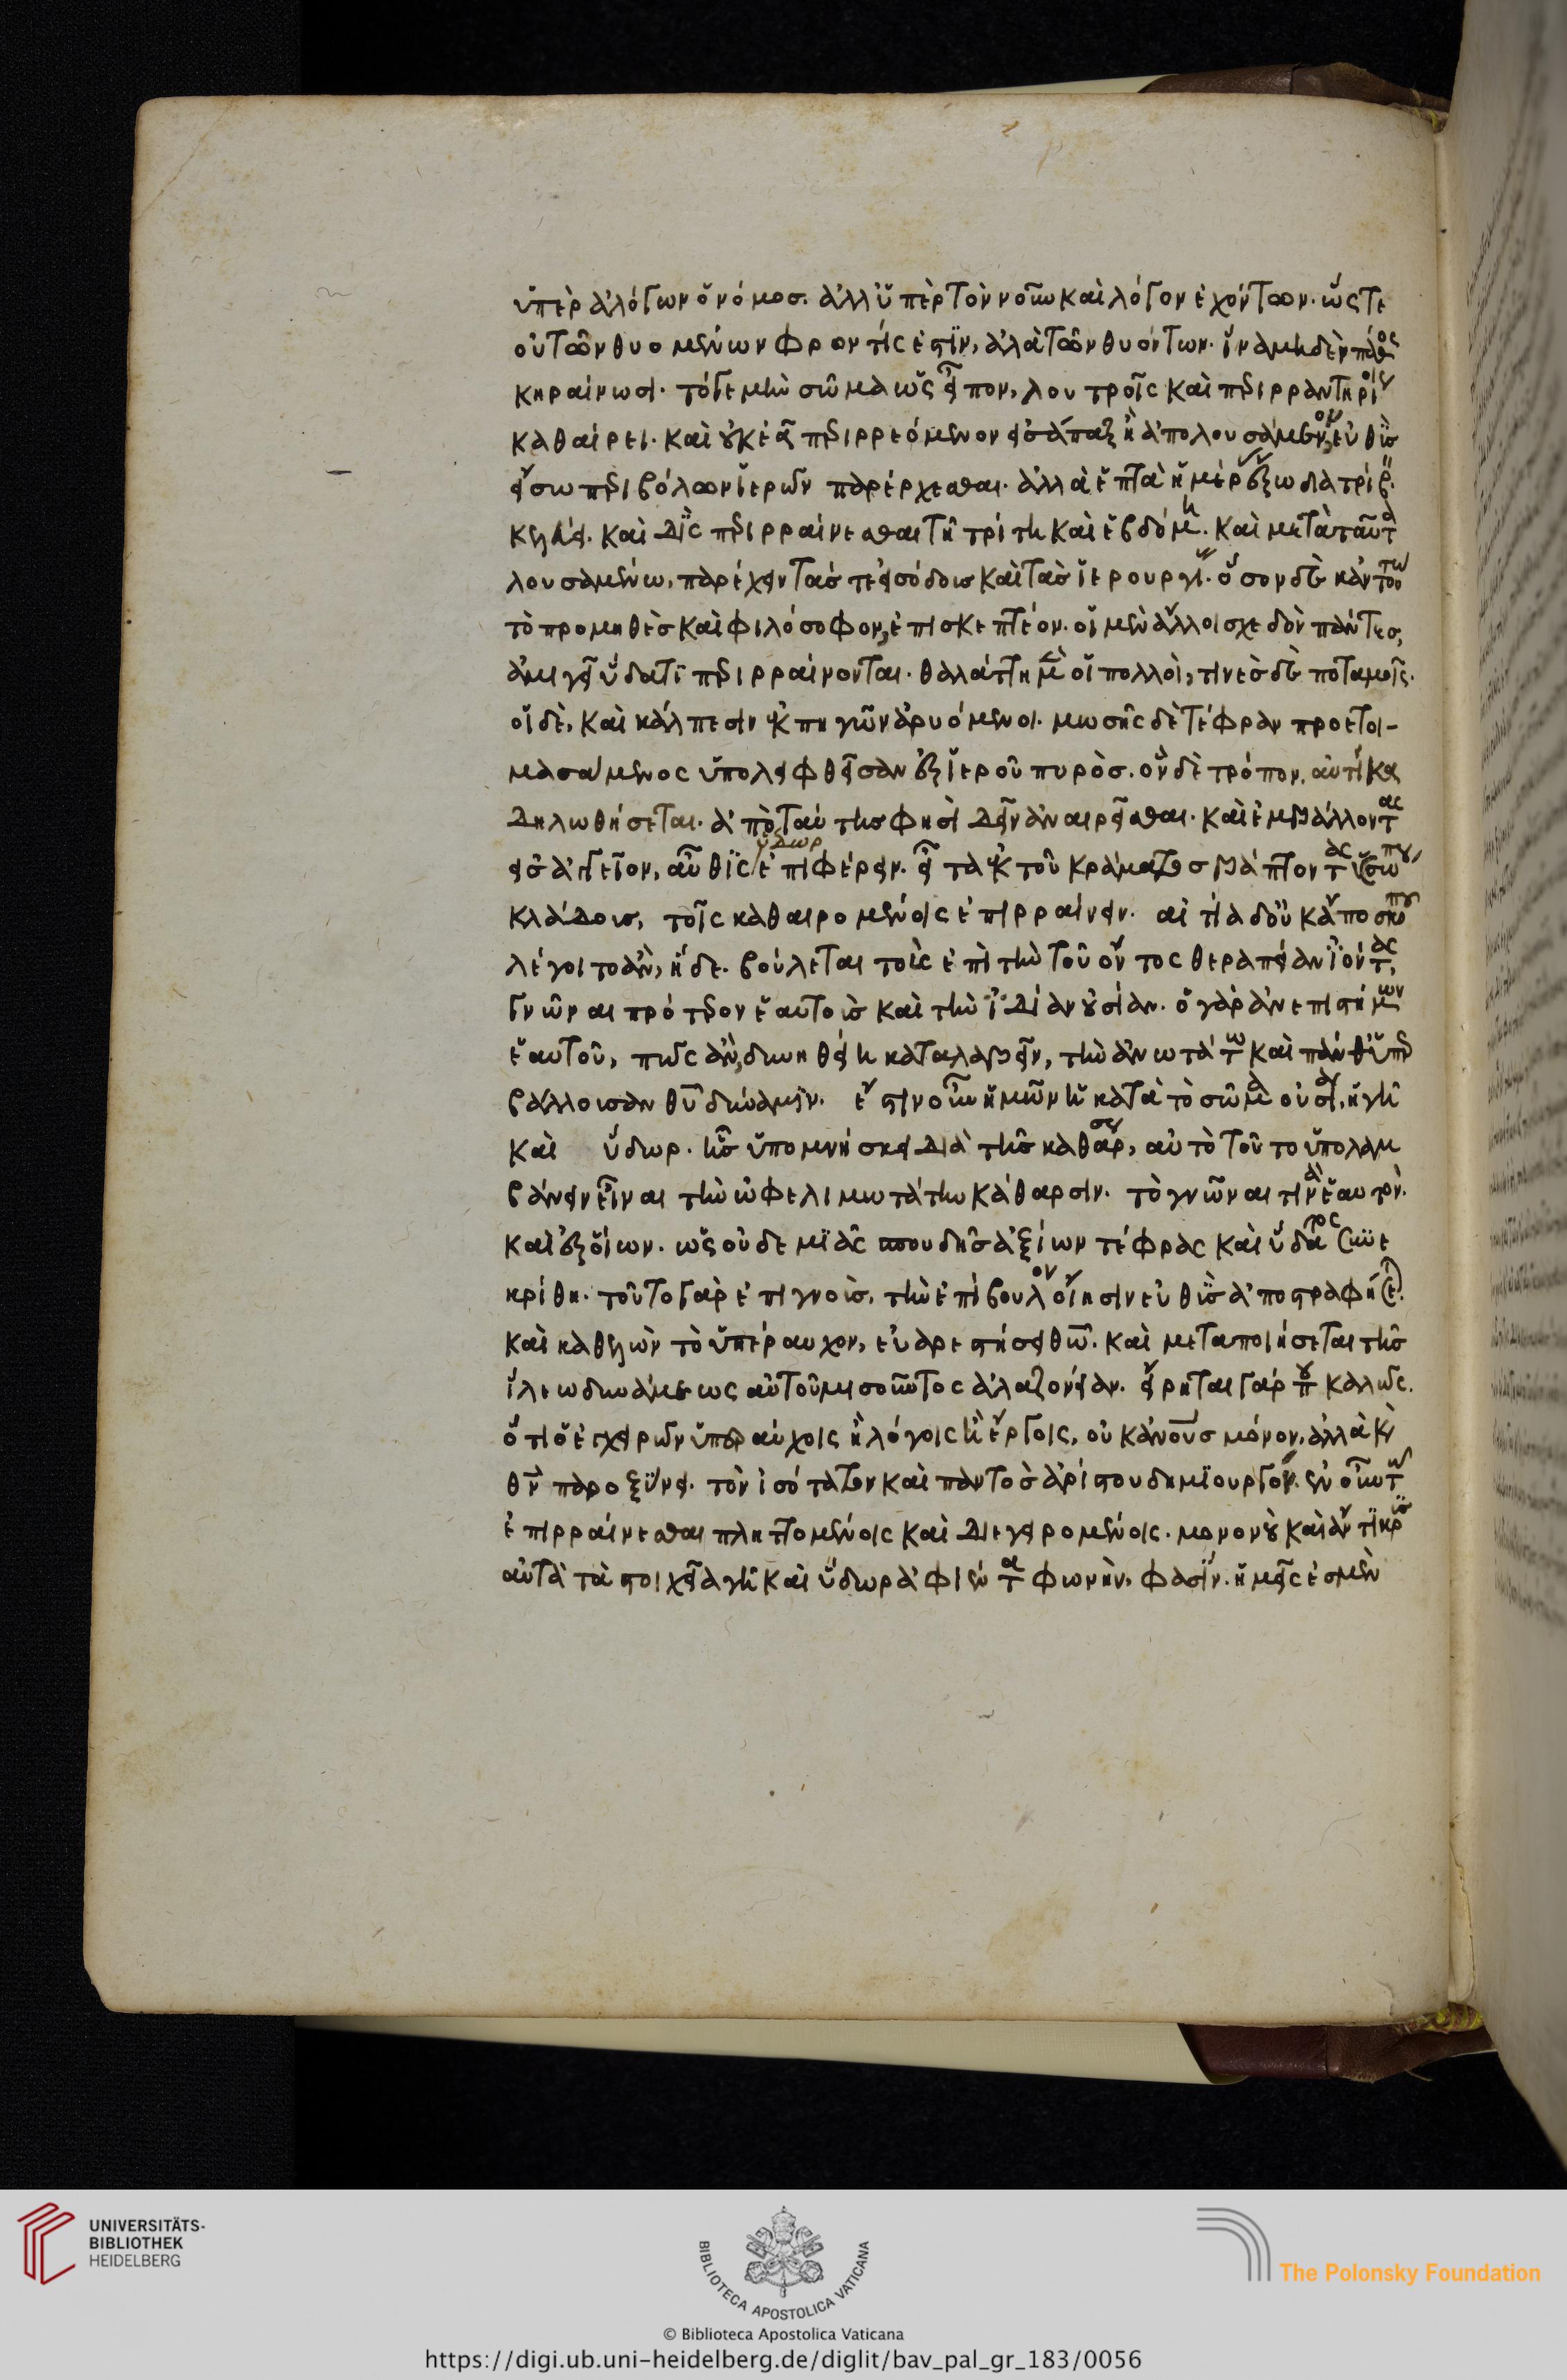 ὑπὲρ ἀλόγων ὁ νόμος. ἀλλ' ὑπὲρ τῶν νοῦν καὶ λόγον ἐχόντων. ὥς τε
οὐ τῶν θυομένων φροντίς ἐστιν, ἀλὰ τῶν θυόντων. ἵνα μηδὲν πάθος
κηραίνωσι. τό γε μὴν σῶμα ὡς εἶπον, λουτροῖς καὶ περιρραντηρίοις
καθαίρει. καὶ οὐκ ἐᾷ περιρρεόμενον εἰσάπαξ ἢ ἀπολουσάμενον, εὐθὺς
εἴσω περιβόλων ἱερῶν παρέρχεσθαι. ἀλλὰ ἑπτὰ ἡμέρας ἔξω διατρίβ.
κελεύει. καὶ δὶς περιρραίνεσθαι τῇ τρίτῃ καὶ ἑβδόμῃ. καὶ μετὰ ταῦτα
λουσαμένω, παρέχειν τὰς τε εἰσόδοις καὶ τὰς ἱερουργίας. ὅσον δὲ κἀν τούτω
τὸ προμηθὲς καὶ φιλόσοφον, ἐπισκεπτέον. οἱ μὲν ἄλλοι σχεδὸν πάντες,
ἀμιγεῖ ὕδατι περιρραίνονται. θαλάττη μὲν οἱ πολλοὶ, τινὲς δὲ ποταμοῖς.
οἱ δὲ, καὶ κάλπεσιν ἐκ πηγῶν ἀρυόμενοι. μωσῆς δὲ τέφραν προετοι-
μασάμενος ὑπολειφθεῖσαν ἐξ ἱεροῦ πυρὸς. ὃν δὲ τρόπον, αὐτίκα
δηλωθήσεται. ἀπὸ ταύτης φησὶ δεῖν ἀναιρεῖσθαι. καὶ ἐμβάλλοντας
εἰς ἀγγεῖον, αὖθις ὕδωρ ἐπιφέρειν. εἶτα ἐκ τοῦ κράματος βάπτοντας ὑσσώπου
κλάδοις, τοῖς καθαιρομένοις ἐπιρραίνειν. αἰτία δ' οὐκ ἀπὸ σκοποῦ
λέγοιτο ἂν, ἥδε. βούλεται τοὺς ἐπὶ τὴν τοῦ ὄντος θεραπείαν ἰόντας,
γνῶναι πρότερον ἑαυτοὺς καὶ τὴν ἰδίαν οὐσίαν. ὁ γὰρ ἀνεπιστήμων
ἑαυτοῦ, πῶς ἂν, δυνηθείη καταλαβεῖν, τὴν ἀνωτάτω καὶ πάνθ' ὑπερ
βάλλουσαν θεοῦ δύναμιν. ἔστιν οὖν ἡμῶν ἡ κατὰ τὸ σῶμα οὐσία, ἡ γῆ
καὶ ὕδωρ. ἧς ὑπομνήσκει διὰ τῆς καθάρσεως, αὐτὸ τοῦτο ὑπολαμ
βάνειν εἶναι τὴν ὠφελιμωτάτην κάθαρσιν. τὸ γνῶναι τινὰ ἑαυτόν.
καὶ ἐξ οἵων. ὡς οὐδεμιᾶς σπουδῆς ἀξίων τέφρας καὶ ὕδατος συνε
κρίθη. τοῦτο γὰρ ἐπιγνοὺς, τὴν ἐπίβουλον οἴησιν εὐθὺς ἀποστραφήσεται.
καὶ καθελὼν τὸ ὑπέραυχον, εὐαρεστήσει θεῷ. καὶ μεταποιήσεται τῆς
ἵλεω δυνάμεως αὐτοῦ μισοῦντος ἀλαζονείαν. εἴρηται γάρ που καλῶς.
ὅτι ὁ ἐγχειρῶν ὑπεραύχοις ἢ λόγοις ἢ ἔργοις, οὐκ ἀνοῦς μόνον, ἀλλὰ καὶ
θεὸν παροξύνει. τὸν ἰσότατον καὶ παντὸς ἀρίστου δημιουργόν. εὖ οὖν τῶ
ἐπιρραίνεσθαι πληττομένοις καὶ διεγειρομένοις. μονονοὺ καὶ ἄντικρυς
αὐτὰ τὰ στοιχεῖα γῆ καὶ ὕδωρ ἀφιέντα φωνὴν, φασίν. ἡμεῖς ἐσμὲν
UNIVERSITÄTS-
BIBLIOTHEK
HEIDELBERG
BIBLIOTECA APOSTOLICA VATICANA
The Polonsky Foundation
© Biblioteca Apostolica Vaticana
https://digi.ub.uni-heidelberg.de/diglit/bav_pal_gr_183/0056